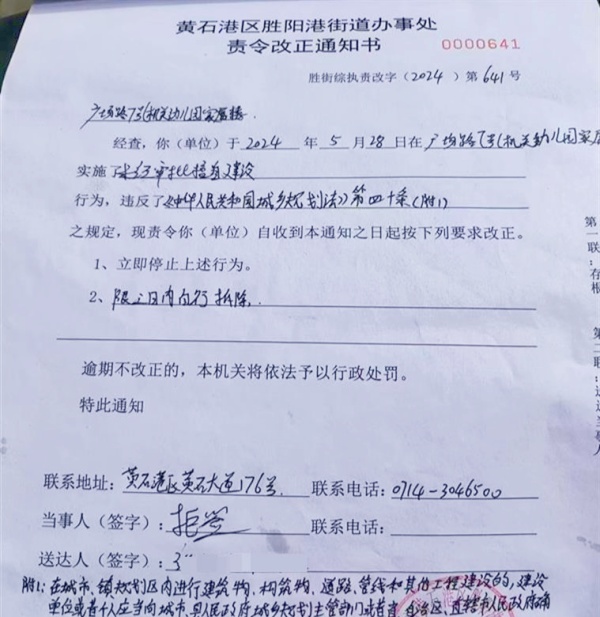 黄石港区胜阳港街道办事处
责令改正通知书 0000641
胜街综执责改字（2024）第641号
广场路7号（机关幼儿园家属楼
经查，你（单位）于2024年5月28日在广场路7号（机关幼儿园家属
实施了未经审批擅自建设
行为，违反了《中华人民共和国城乡规划法》第四十条（附1）
之规定，现责令你（单位）自收到本通知之日起按下列要求改正。
1、立即停止上述行为。
2、限三日内自行拆除.
逾期不改正的，本机关将依法予以行政处罚。
特此通知
联系地址：黄石港区黄石大道176号 联系电话：0714-3046500
当事人（签字）：拒签 联系电话：
送达人（签字）：
附1：在城市、镇规划区内进行建筑物、构筑物、道路、管线和其他工程建设的，建设
单位或者个人应当向城市、县人民政府城乡规划主管部门或者省、自治区、直辖市人民政府确
第
一
联
：
存
根
第
二
联
：
送
达
当
事
人